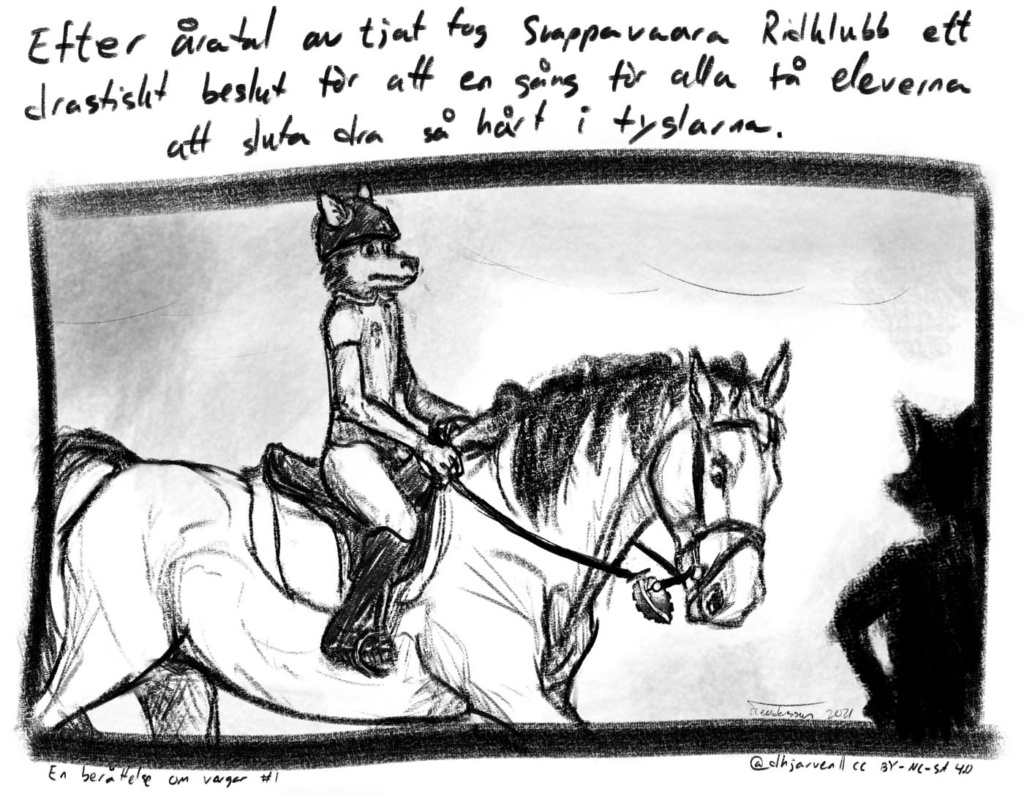 Efter åratal av tjat tog Svappavaara Ridklubb ett
drastiskt beslut för att en gång för alla få eleverna
att sluta dra så hårt i tyglarna.
2021
En berättelse om vargar #1
@dhjarvenll CC BY-NC-SA 4.0